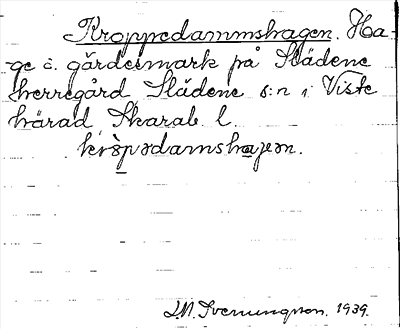 Kroppedammshagen. Ha-
ge i gärdesmark på Slädene
herregård Slädene s:n i Viste
härad, Skarab. l.
kròpədamshajen.
J.M. Svenungsson. 1939.